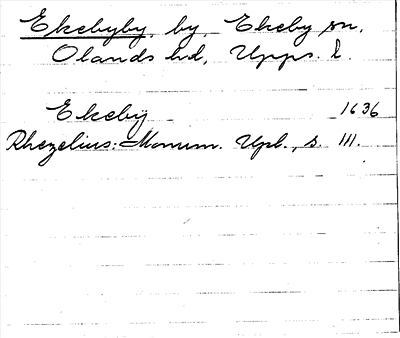 Ekebyby, by, Ekeby sn,
Olands hd, Upps. l.
Ekebÿ 1636
Rhezelius: Monum. Upl., s. 111.